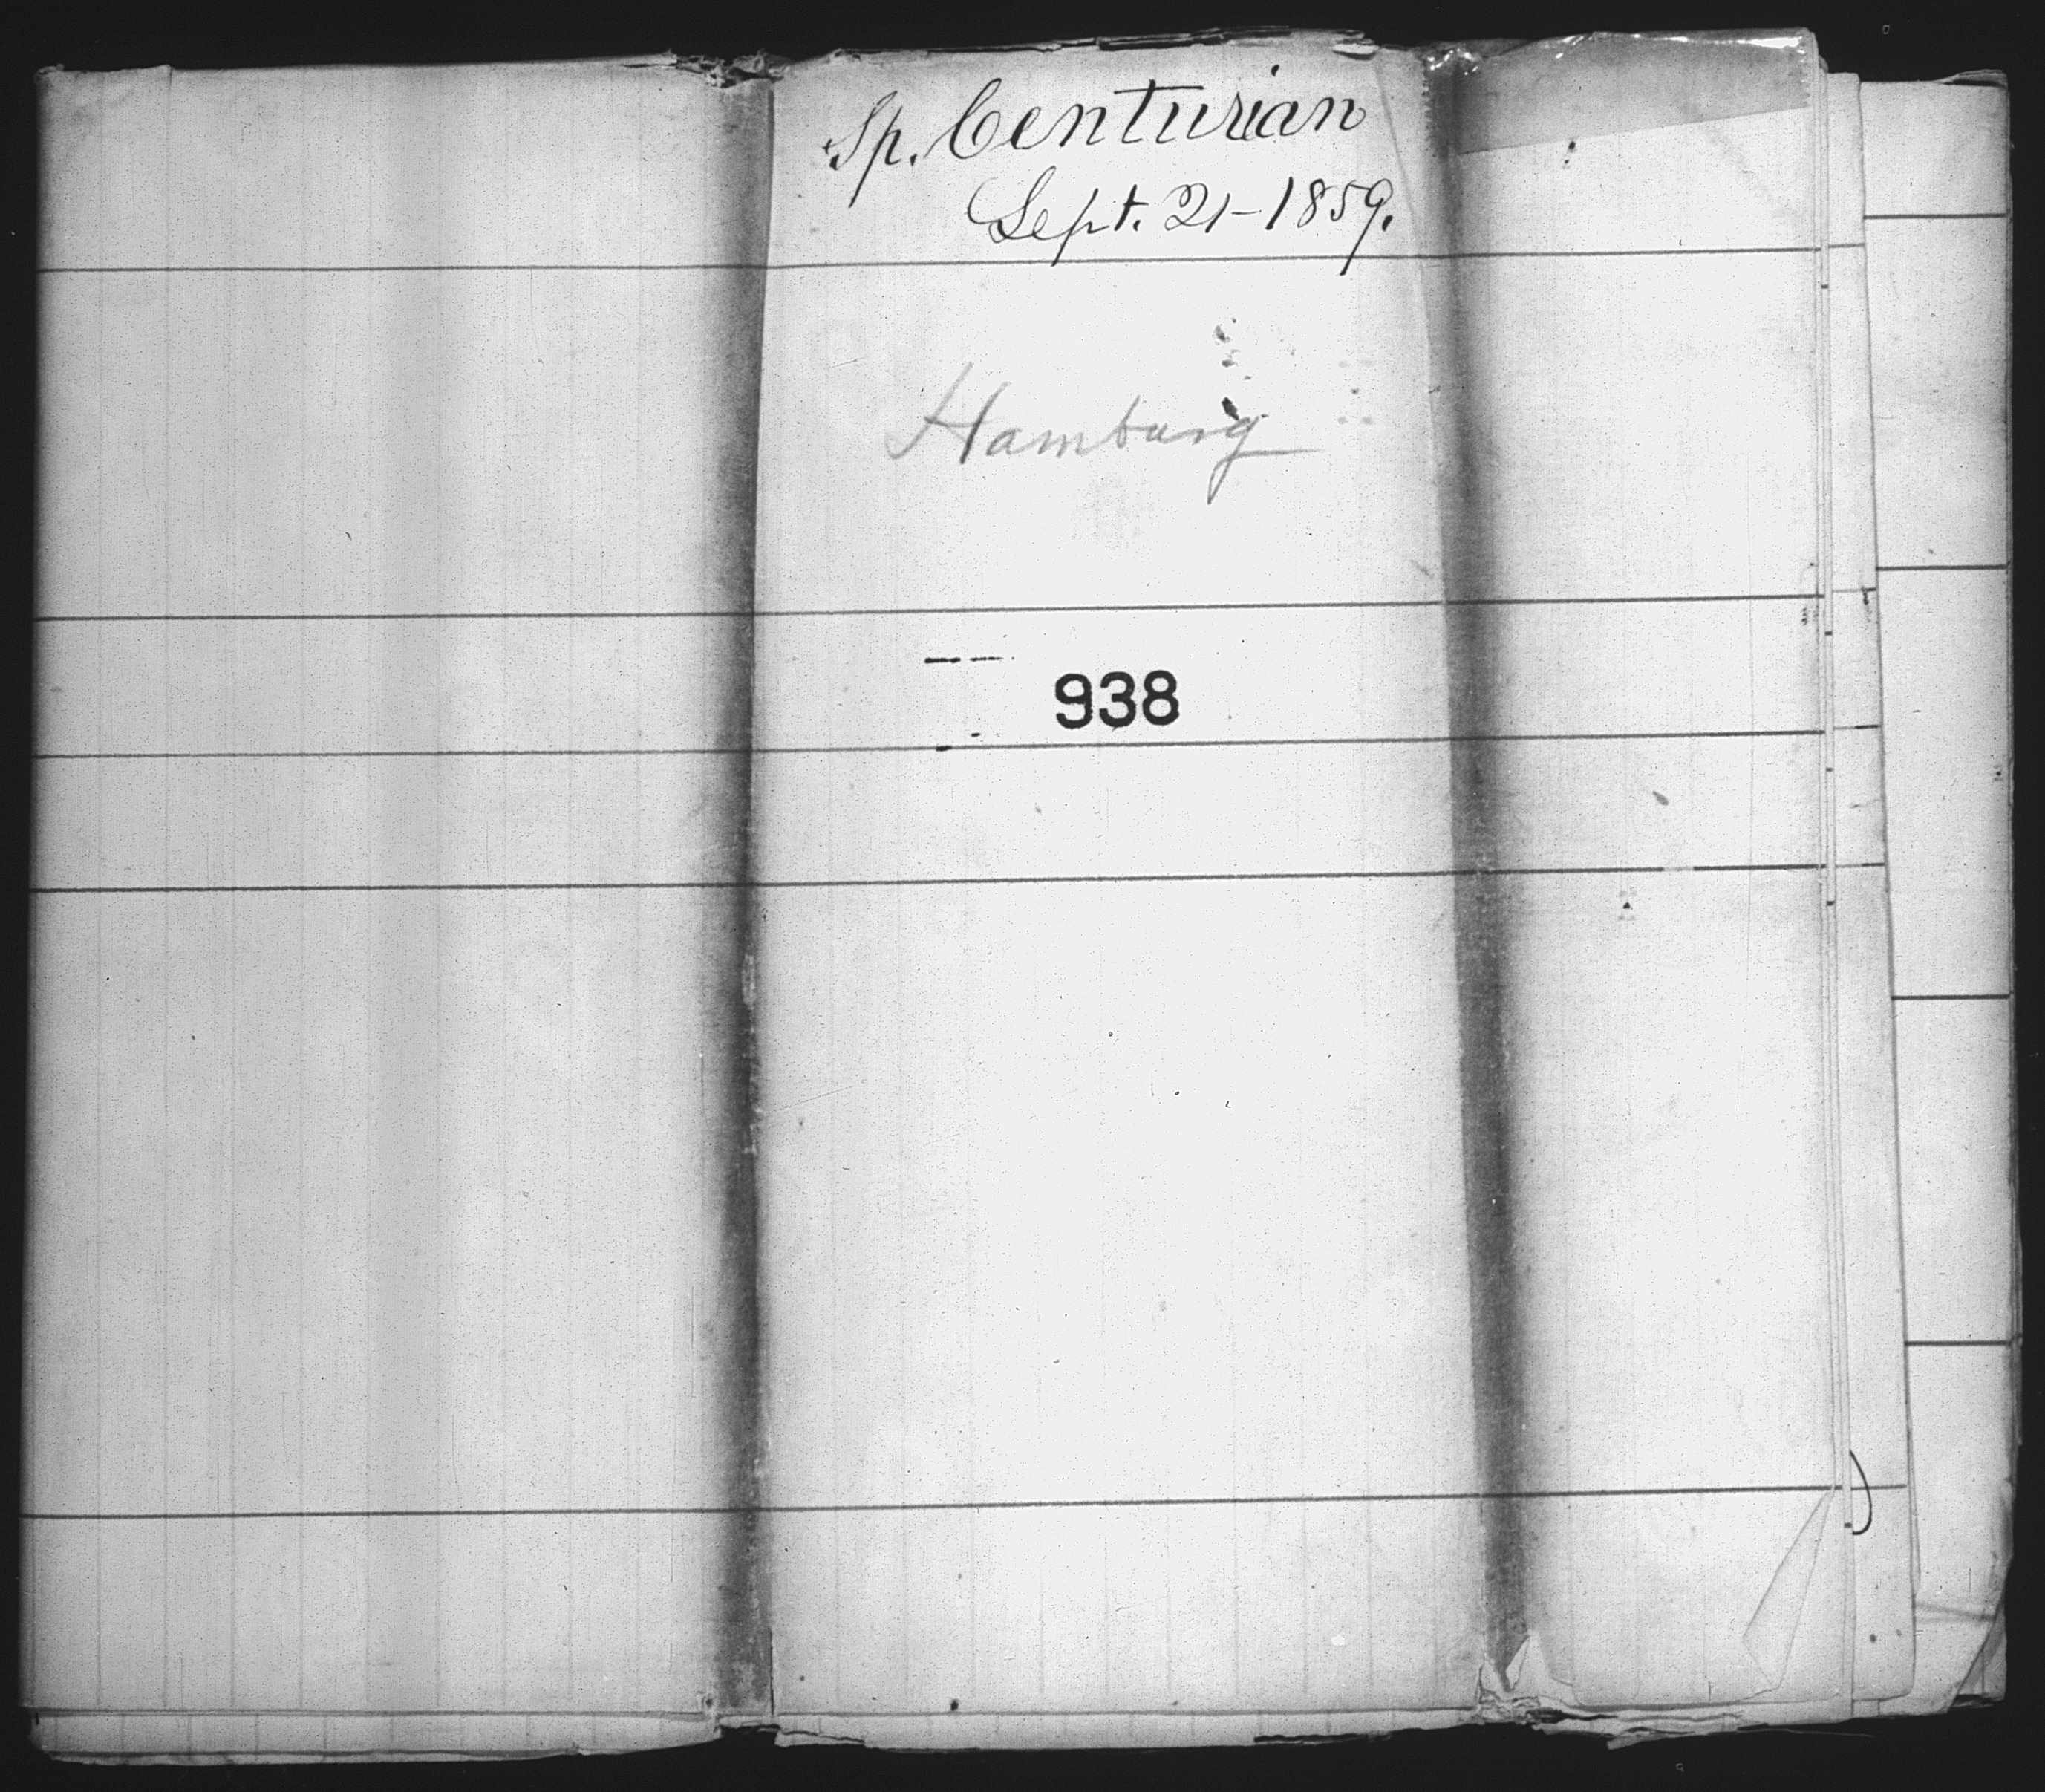 Sp. Centurian
Sept. 21-1859.
Hamburg
938